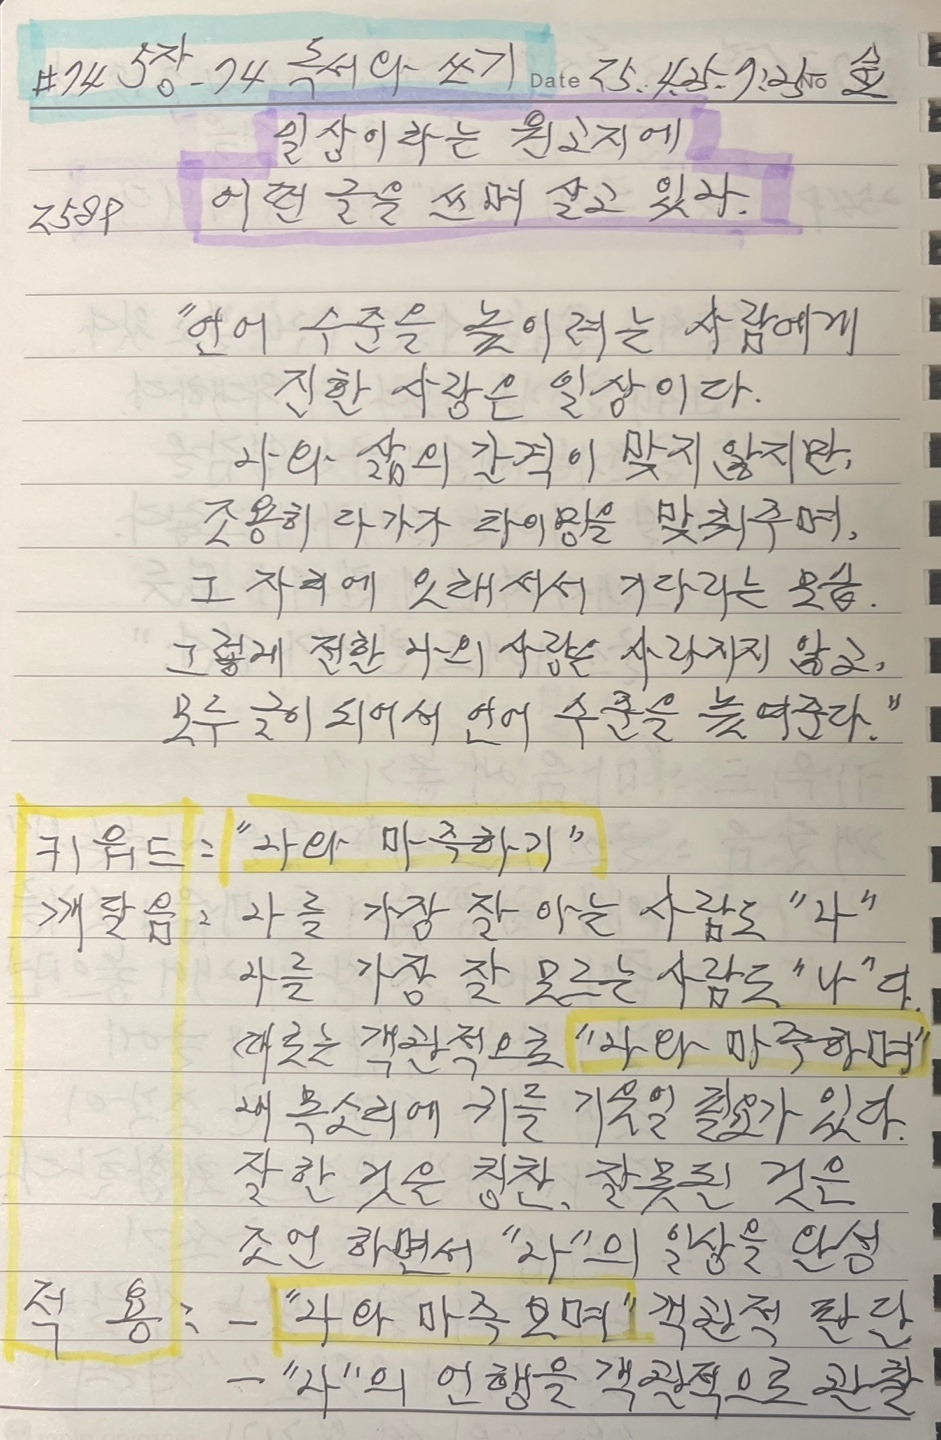 #74 5장-74 독서와 쓰기 Date 25.4.25-9:25 No 송
일상이라는 원고지에
258P 어떤 글을 쓰며 살고 있나.
"언어 수준을 높이려는 사람에게
진한 사랑은 일상이다.
나와 삶의 간격이 맞지 않지만,
조용히 다가가 타이밍을 맞춰주며,
그 자리에 오래 서서 기다리는 모습.
그렇게 전한 나의 사랑은 사라지지 않고,
모두 글이 되어서 언어 수준을 높여준다."
키워드: "나와 마주하기"
깨달음: 나를 가장 잘 아는 사람도 "나"
나를 가장 잘 모르는 사람도 "나"다.
때로는 객관적으로 "나와 마주하며"
내 목소리에 귀를 기울일 필요가 있다.
잘한 것은 칭찬, 잘못된 것은
조언 하면서 "나"의 일상을 완성
적 용: - "나와 마주 보며" 객관적 판단
- "나"의 언행을 객관적으로 관찰